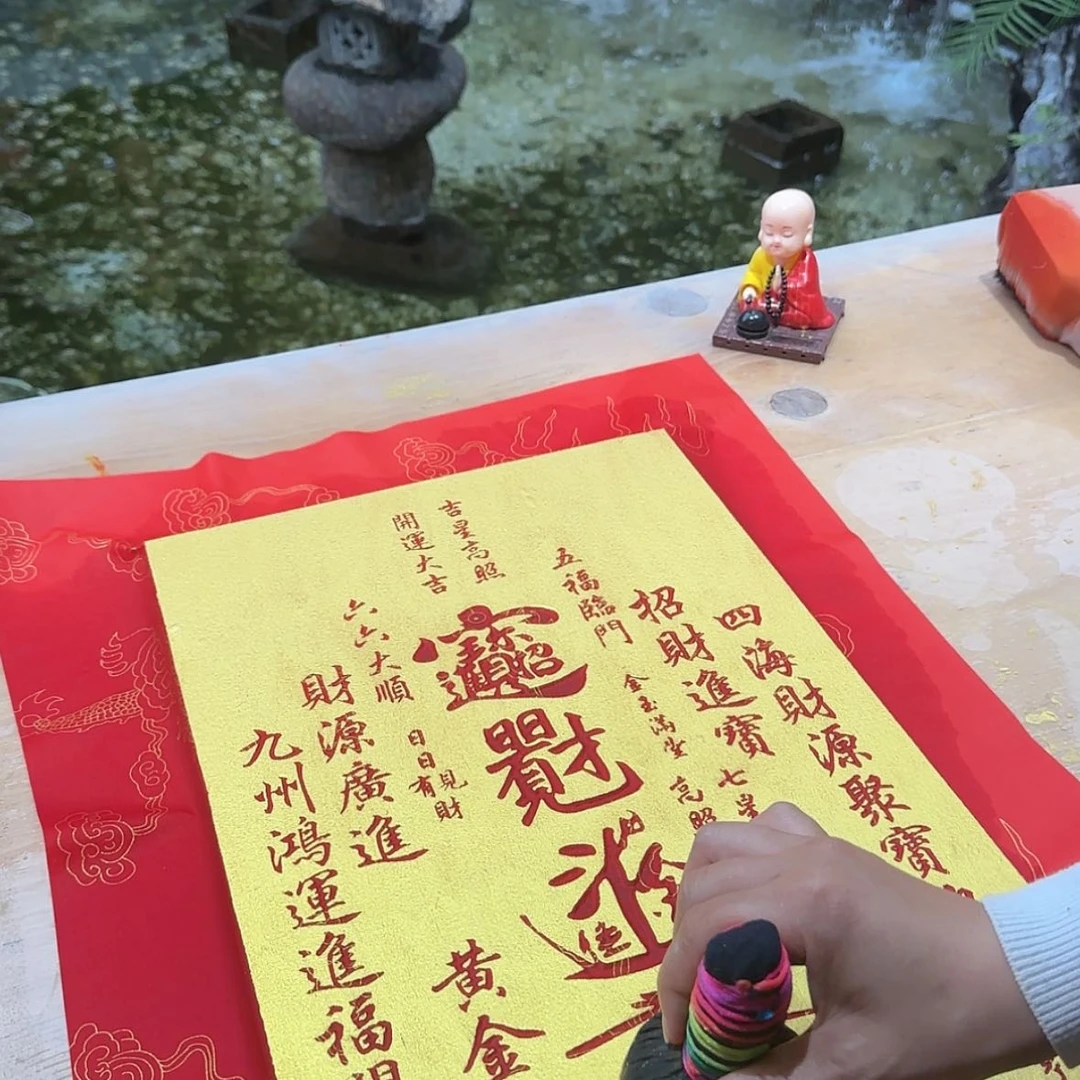 四海財源聚寶
招財進寶
七星
高照
五福臨門
金玉滿堂
吉星高照
開運大吉
招財進寶
日日有見財
六六大順
日日有
見財
黃金
財源廣進
九州鴻運進福